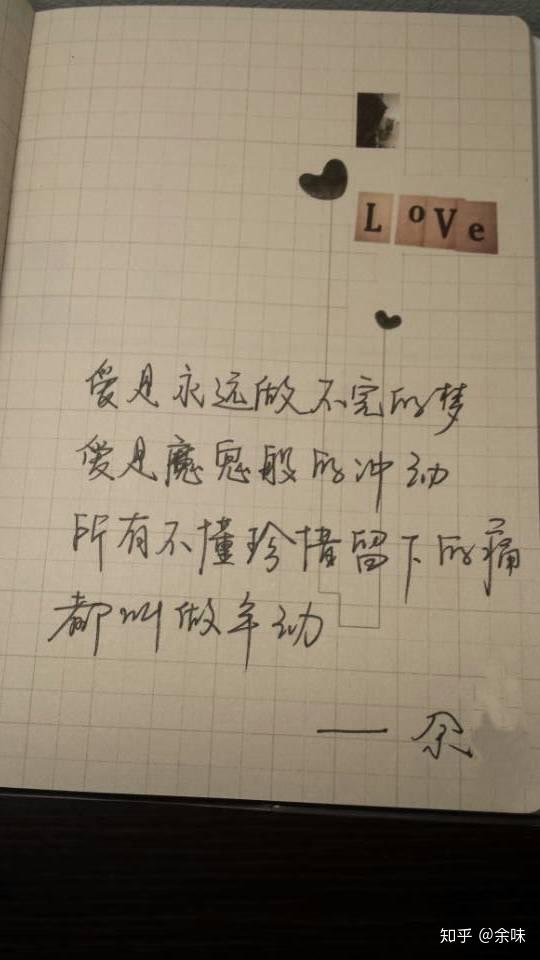 LoVe
爱是永远做不完的梦
爱是魔鬼般的冲动
所有不懂珍惜留下的痛
都叫做年幼
——余
知乎 @余味